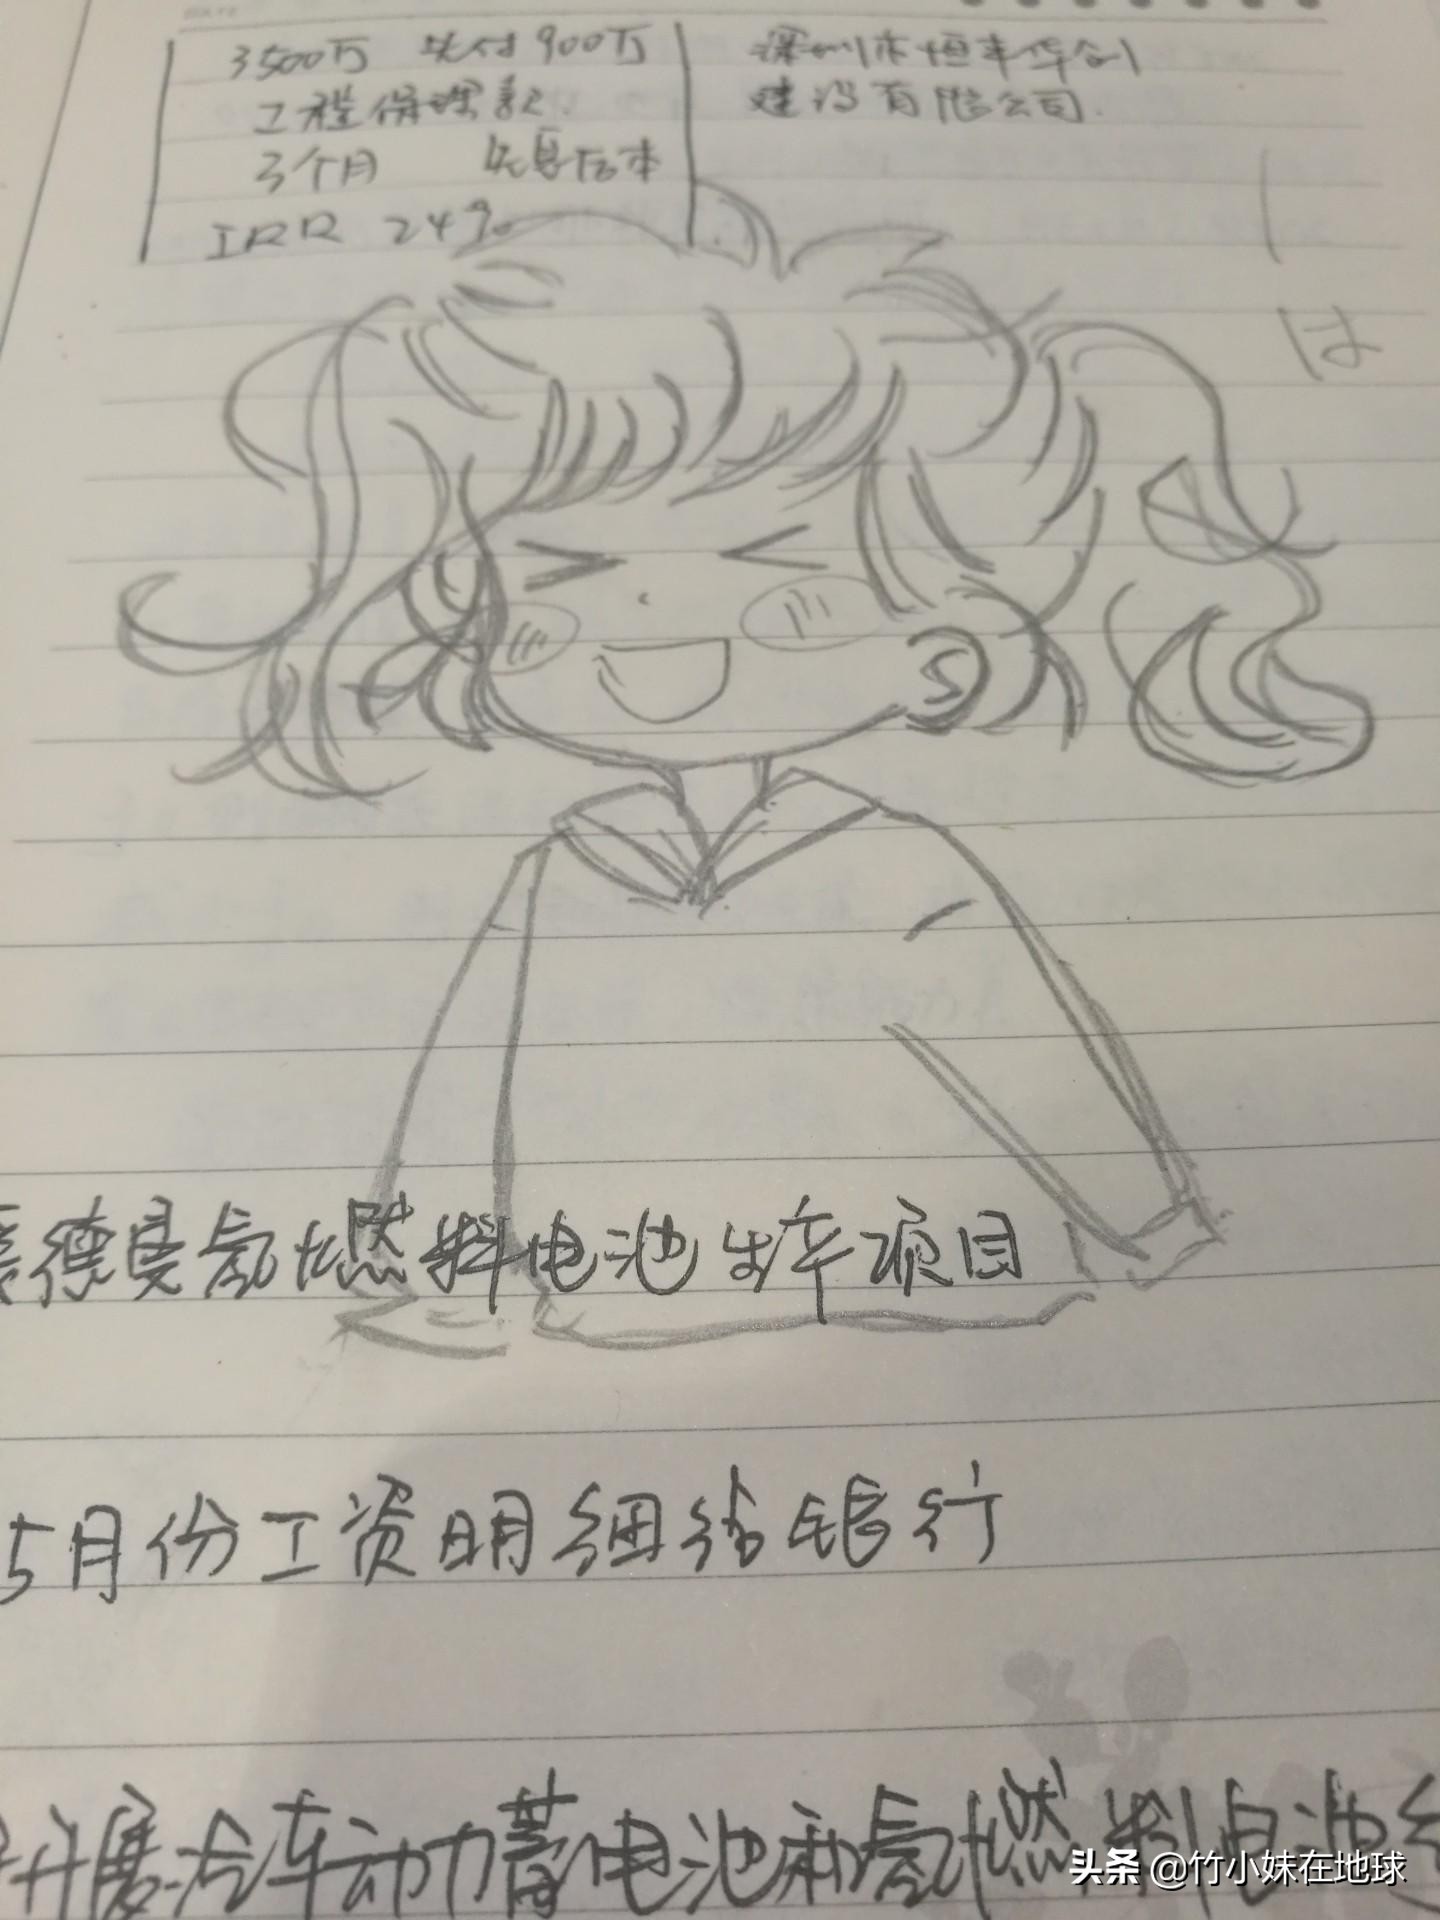 3500万 先付900万
工程保理款.
3个月 先息后本
IRR 24%
深圳市恒丰华创
建设有限公司.
は
德曼氢燃料电池生产项目
5月份工资明细给银行
开展汽车动力蓄电池和氢燃料电池
头条 @竹小妹在地球